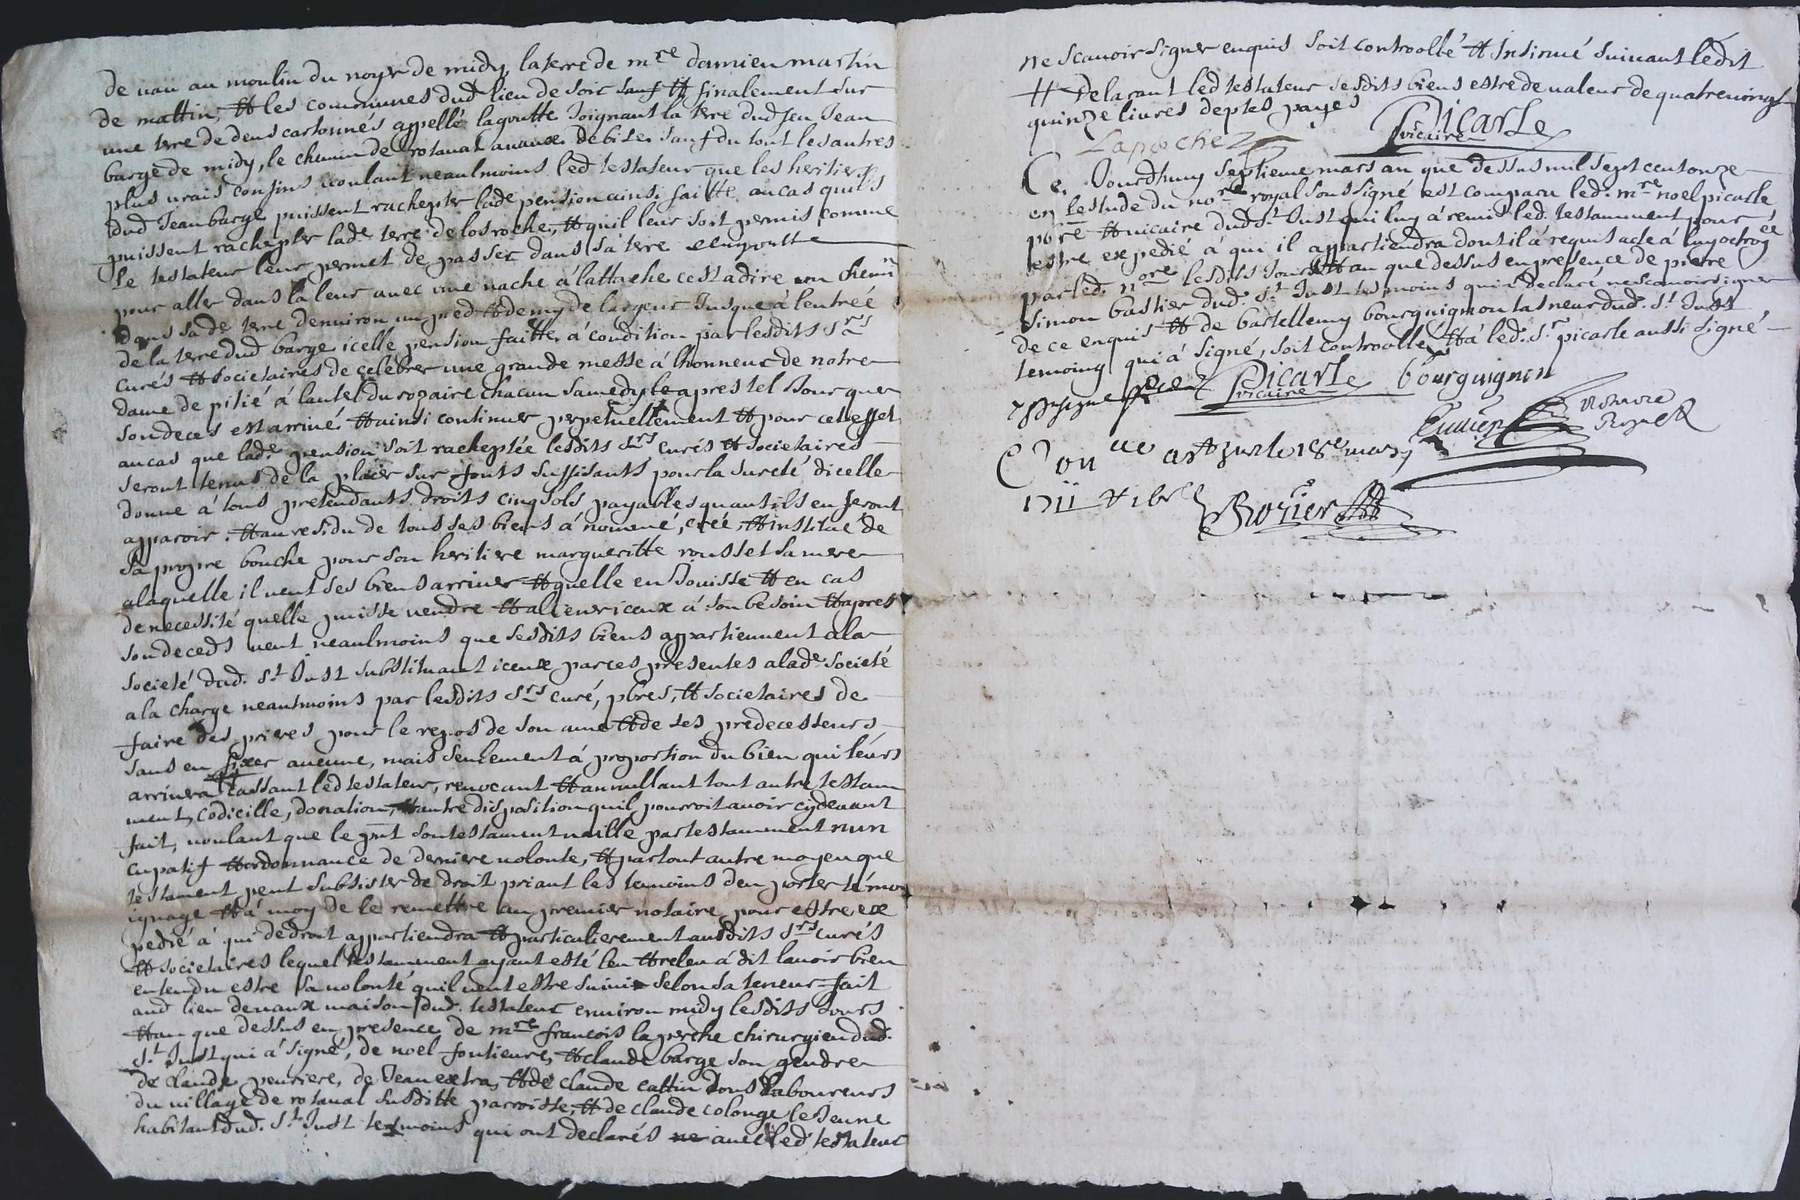 de vau au moulin du noyer de midy, la terre de mre damien martin
de mattin, et les communes dud lieu de soir sauf et finalement sur
une terre de deux cartonnés appellé lagoutte Joignant la terre dud feu Jean
barge de midy, le chemin de rotaval a vaux de bize sauf du tout les autres
plus vrais confins voulant neaulmoins led testateur que les heritiers
dud Jean barge puissent rachepter lade pension ainsi faitte au cas quils
puissent rachepter lade terre de losroche, et quil leur soit permis comme
le testateur leur permet de passer dans sa terre
pour aller dans la leur avec une vache a lattache cest a dire un chemin
dans sade terre denviron un pied et demy de largeur Jusque à lentrée
de la terre dud barge icelle pension faitte à condition par lesdits srs
curés et societaires de celebrer une grande messe à lhonneur de notre
dame de pitié a lautel du rozaire chacun samedy apres tel Jour que
son deces est arrivé et ainsi continuer perpetuellement et pour cet effet
au cas que lade pension soit racheptée lesdits srs curés et societaires
seront tenus de la placer sur fonts suffisants pour la sureté dicelle
donne à tous pretendants droits cinq sols payables quant ils en feront
apparoir. et au residu de tous ses biens à nommé, creé et institué de
sa propre bouche pour son heritiere margueritte rousset sa mere
a laquelle il veut ses biens arriver et quelle en Jouisse et en cas
de necessité quelle puisse vendre et aliener iceux à son besoin et apres
son deceds veut neaulmoins que sesdits biens appartiennent a la
societé dud. st Just substituant iceux par ces presentes a lade societé
a la charge neantmoins par lesdits srs curé, pbres, et societaires de
faire des prieres pour le repos de son ame et de ses predecesseurs
sans en fixer aucune, mais seulement à proportion du bien qui leurs
arrivera cassant led testateur, revocant et annullant tout autre testam
ment, codicille, donation, et autre disposition quil pourroit avoir cydevant
fait, voulant que le pnt son testament vaille par testamment nun
cupatif et ordonnance de derniere volonte, et par tout autre moyen que
testament peut subsister de droit priant les temoins den porter témoi
ignage et à moy de le remettre au premier notaire pour estre exe
pedié à qui de droit appartiendra et particulierement ausdits srs curés
et societaires lequel testamment ayant esté leu et releu à dit lavoir bien
entendu estre sa volonté quil veut estre suivie selon sa teneur fait
aud lieu de vaux maison dud. testateur environ midy lesdits Jours
et an que dessus en presence de mre francois laproche chirurgien dud.
st Just qui à signé, de noel fontieure, et claude barge son gendre
de claude peuriere, de Jean extra, et de claude cattin tous laboureurs
du village de rotaval susditte parroisse, et de claude colonge le Jeune
habitant dud. st Just temoins qui ont declarés ne avec led testateur
ne scavoir signer enquis soit controollé et Insinué suivant ledit
et Declarant led testateur sesdits biens estre de valeur de quatrevingt
quinze livres deptes payes
Laproche Picarle
vicaire
Ce Jourdhuy septieme mars an que dessus mil sept cent onze
en lestude du nore royal soussigné est comparu led. mre noel picarle
pbre et vicaire dud st Just qui luy à remis led. testamment pour
estre expedié à qui il appartiendra dont il à requis acte à luy octroyé
par led. nore lesdits Jours et an que dessus en presence de pierre
simon bastier dud. st Just temoins qui à declaré ne scavoir signer
de ce enquis et de bartellemy bourguignon tasneur dud. st Just
temoing qui à signé, soit controollé et à led. sr picarle aussi signé
Picarle bourguignon
vicaire
notaire
Royal
1711
Rozier